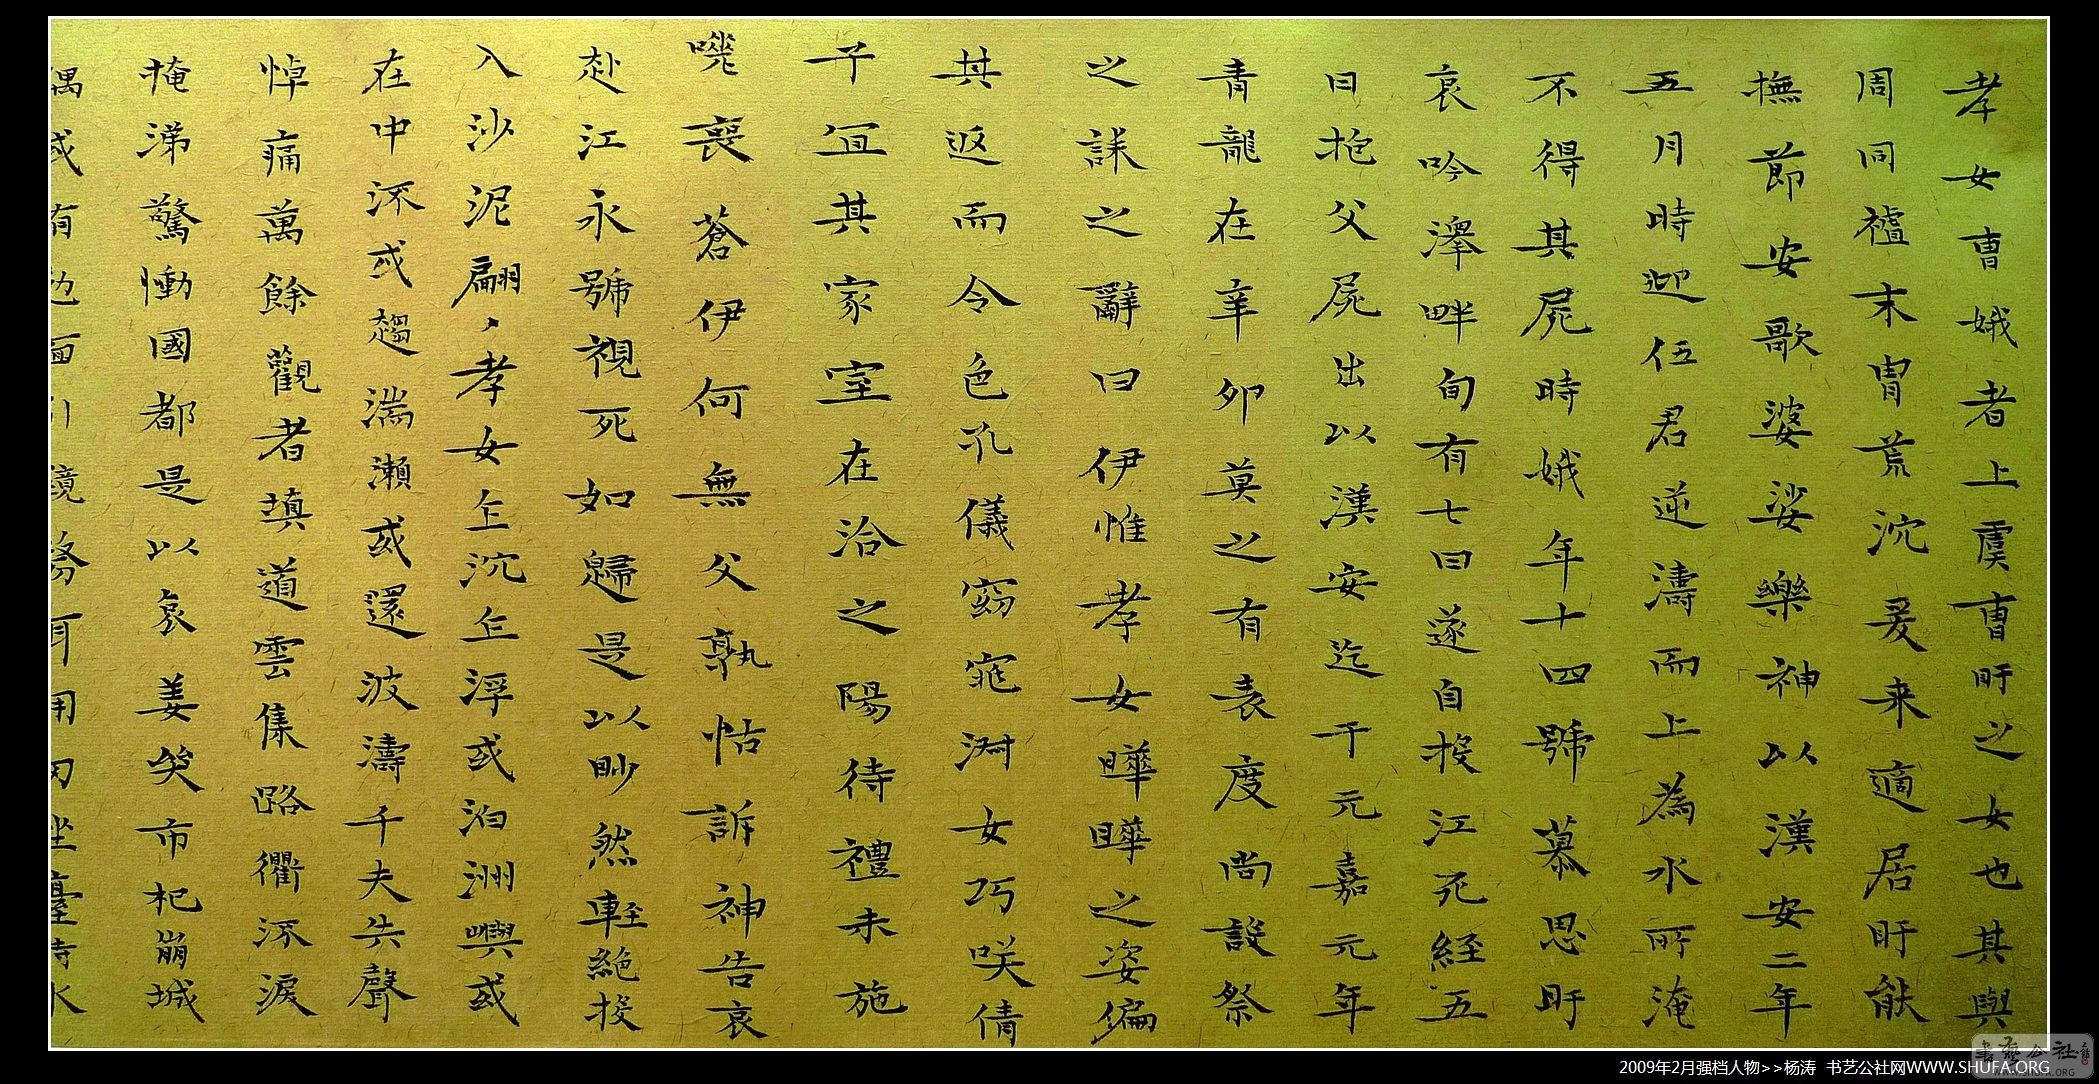 孝女曹娥者上虞曹盱之女也其與
周同禮末胄荒沈爰来適居盱能
撫節安歌婆娑樂神以漢安二年
五月時迎伍君逆濤而上為水所淹
不得其屍時娥年十四號慕思盱
哀吟澤畔旬有七日遂自投江死經五
日抱父屍出以漢安迄于元嘉元年
青龍在辛卯莫之有表度尚設祭
之誄之辭曰伊惟孝女曄曄之姿偏
其返而令色孔儀窈窕淑女巧咲倩
子宜其家室在洽之陽待禮未施
嗟喪蒼伊何無父孰怙訴神告哀
赴江永號視死如歸是以眇然輕絕投
入沙泥翩、孝女乍沉乍浮或泊洲嶼或
在中流或趨湍瀨或還波濤千夫失聲
悼痛萬餘觀者填道雲集路衢流淚
掩涕驚慟國都是以哀姜哭市杞崩城
隅或有面引鏡耳用刀坐臺待水
2009年2月强档人物>>杨涛 书艺公社网WWW.SHUFA.ORG
書藝公社
WWW.SHUFA.ORG